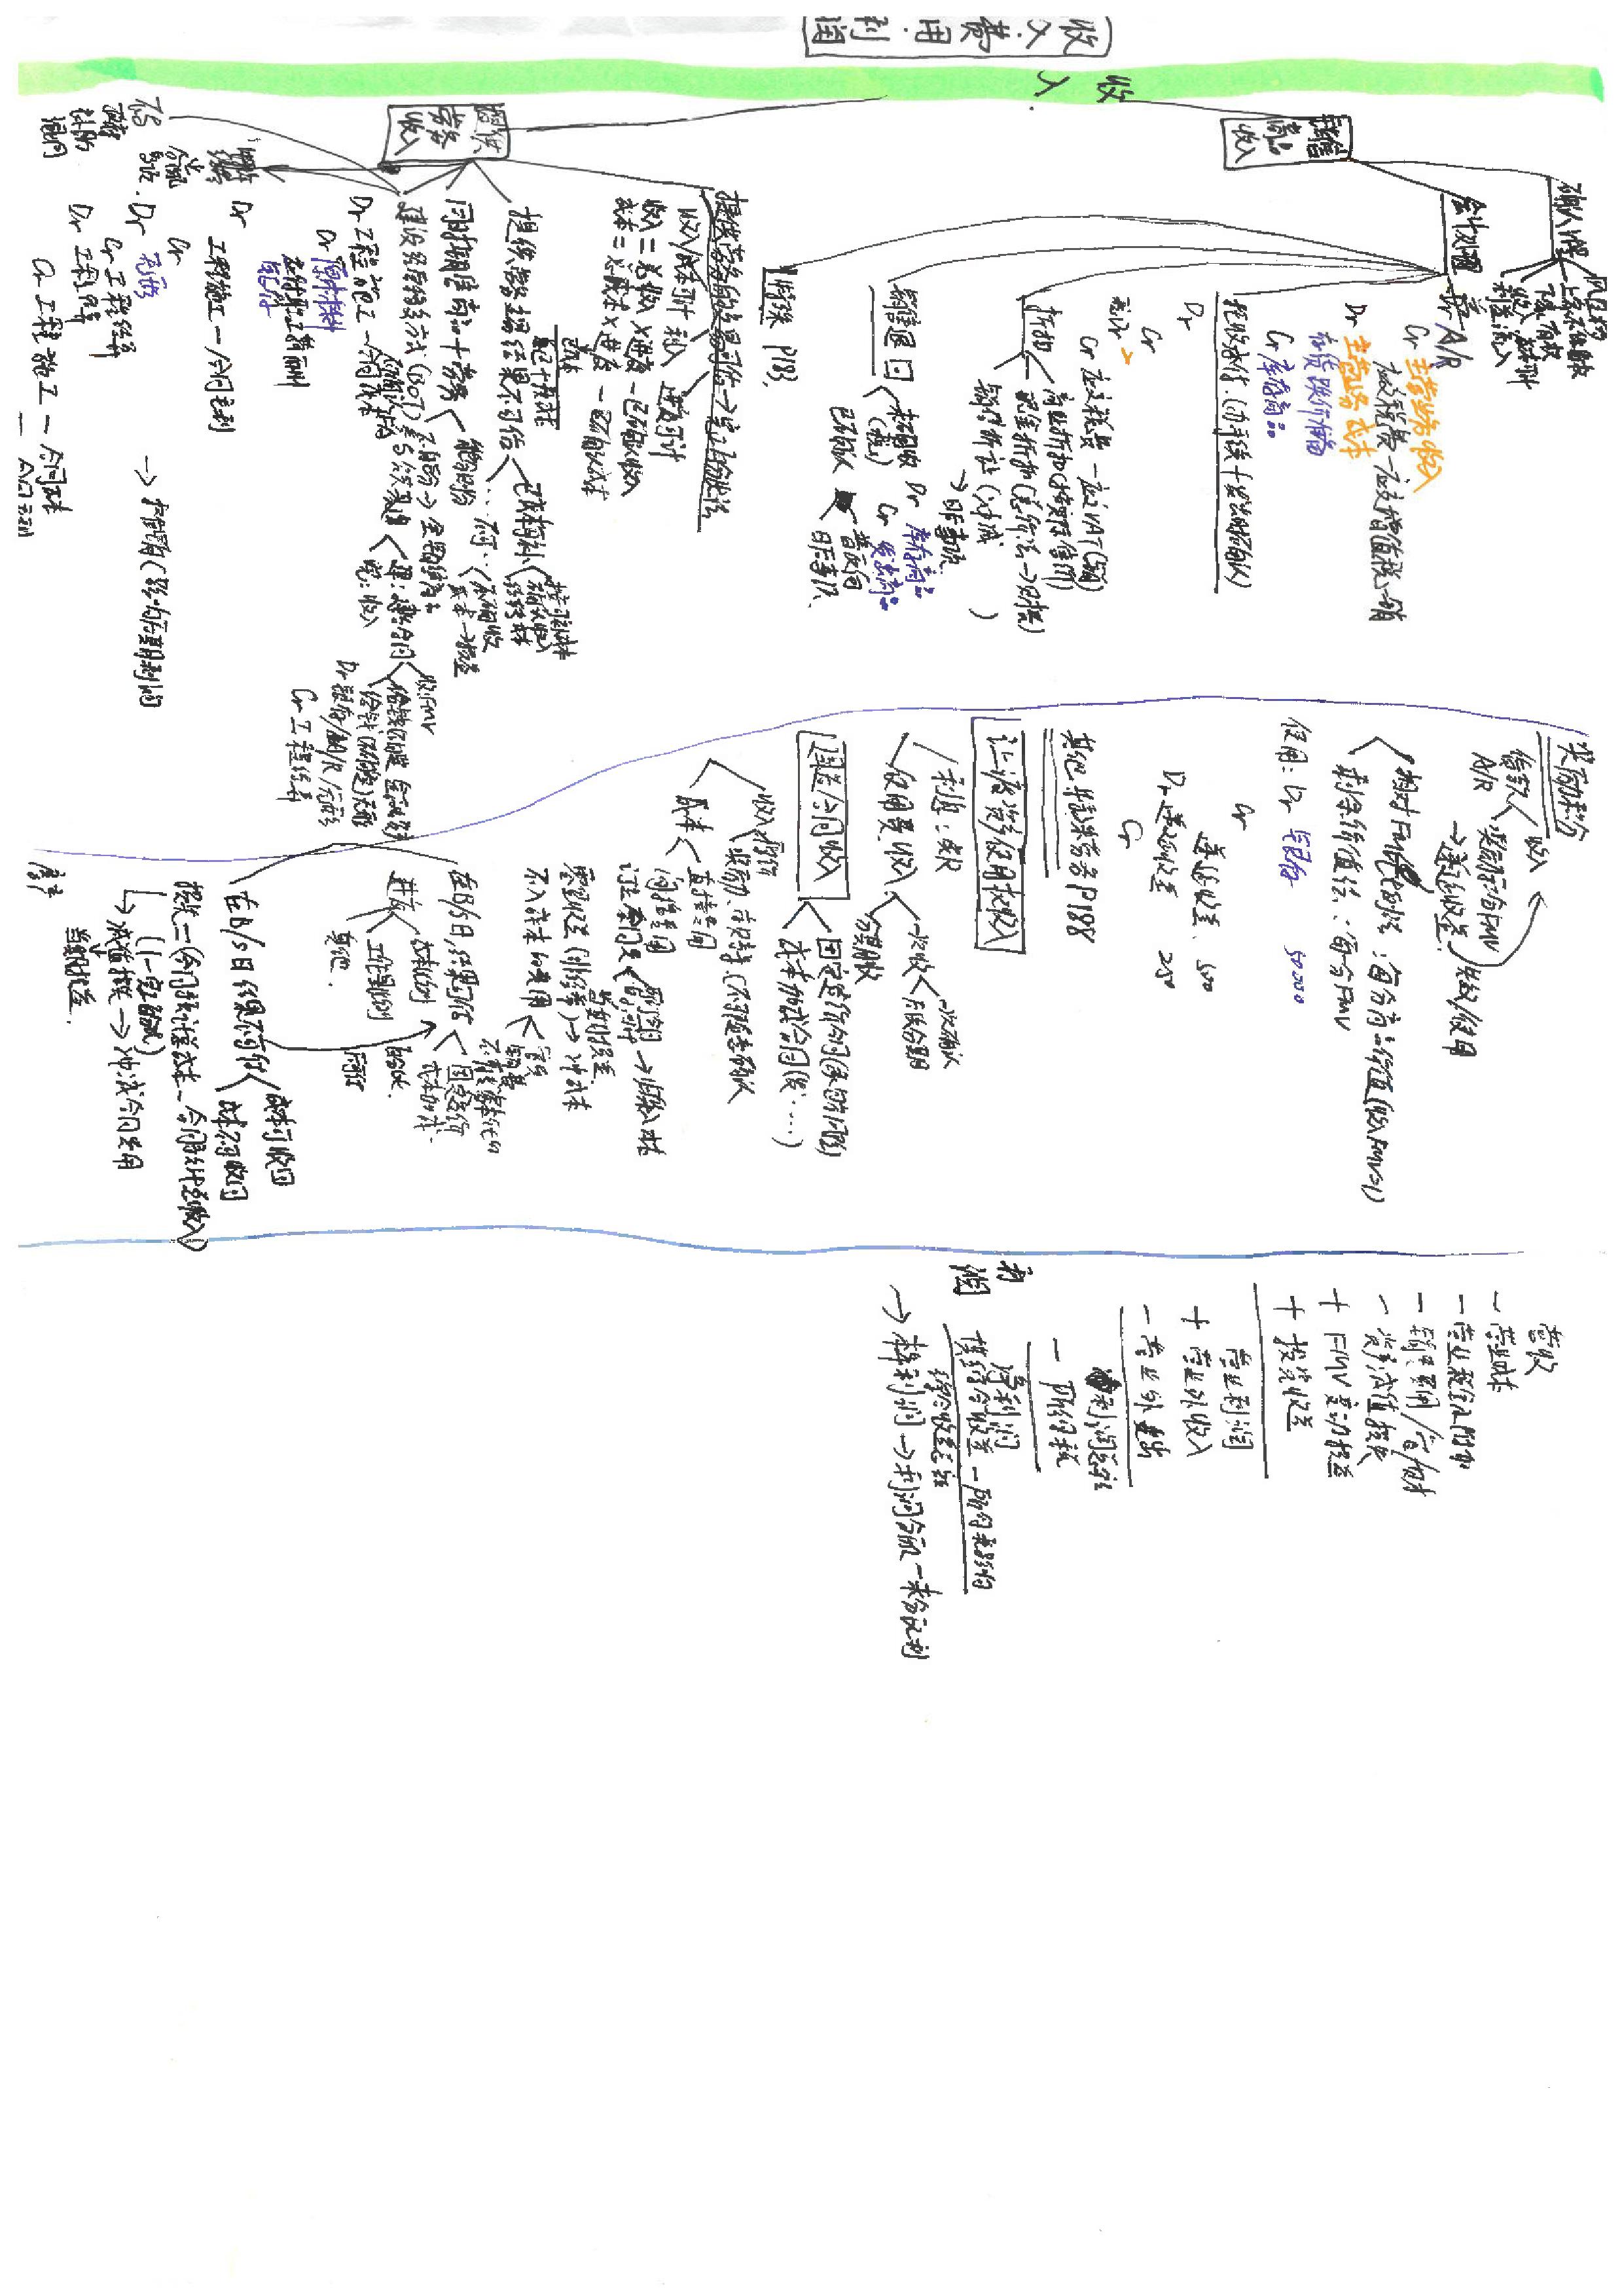 收入·费用·利润
收入.
销售商品收入
确认
风险
上家不保留权
下家有权
收入.成本可计
利益流入
会计处理
Dr A/R
Cr 主营业务收入
应交税费—应交增值税—销
Dr 主营业务成本
存货跌价准备
Cr 库存商品
托收承付.(办手续+发出时确认)
Dr
Cr
Dr
Cr 应交税费—应交VAT(销)
折扣
商业折扣(按实际售价)
现金折扣(总价法→财务)
销售折让(冲减 )
→日后事项.
销售退回
未确收
(税)
Dr 库存商品
Cr 发出商品
已确认
普反向
日后事项.
特殊 P183.
提供劳务收入
提供劳务的交易可估→完工百分比法
收入/成本可计 利入 进度可计
收入=总收入×进度—已确认收入
成本=总成本×进度—已确认成本
已成本
提供劳务交易结果不可估
已成本可补
按可补成本
确认收入
结转成本
…不可…
不确收
成本→损益
同时销售商品+劳务
能分则分
不能分→全部销商品
建设经营移交方式(BOT)参与公共基建
不确认FA
建:建造合同
完:收入
收:FMV
给钱(确定)金融资产
给钱(不确定)无形
Dr 银存/A/R/无形
Cr 工程结算
Dr 工程施工—合同成本
Cr 原材料
应付职工薪酬
银存
Dr
工程施工—合同毛利
Cr
Dr 无形
→摊销(影响后期利润
Cr 工程结算
Dr 工程结算
Cr 工程施工—合同成本
—合同毛利
奖励积分
货款
A/R
收入
奖励积分FMV
→递延收益.
失效/使用
相对FMV比例法:每分商品价值(收入FMV>1)
剩余价值法:每分FMV
使用: Dr 银存 50000
Cr
递延收益. 500
Dr 递延收益 250
Cr
其他特殊劳务P188
让渡资产使用权收入
利息:实R
使用费收入
一次收
一次确认
后续分期
分期收
建造合同收入
固定造价合同(承包方风险)
成本加成合同(发……)
收入
原价
奖励、索赔等.(不可随意确认
成本
直接费用
间接费用
订立合同费
→归集入成本
当期损益.
零星收益(非经常)→冲成本
不入成本的费用
管费
销费
在B/S日,结果可估
固定造价
成本加成.
进度
成本比例
工作量比例
其他.
百分比.
后可估
在B/S日结果不可估
成本可收回
成本不可收回
损失=(合同预计总成本—合同预计总收入)
(1—完工百分比)
减值损失→冲减合同费用
当期损益.
房产
利润
营收
—营业成本
—营业税金及附加
—销售费用/管/财
—资产减值损失
+ FMV变动损益
+ 投资收益
营业利润
+ 营业外收入
—营业外支出
利润总额
—所得税
净利润
其他综合收益—所得税影响
综合收益总额
→本年利润→利润分配—未分配利